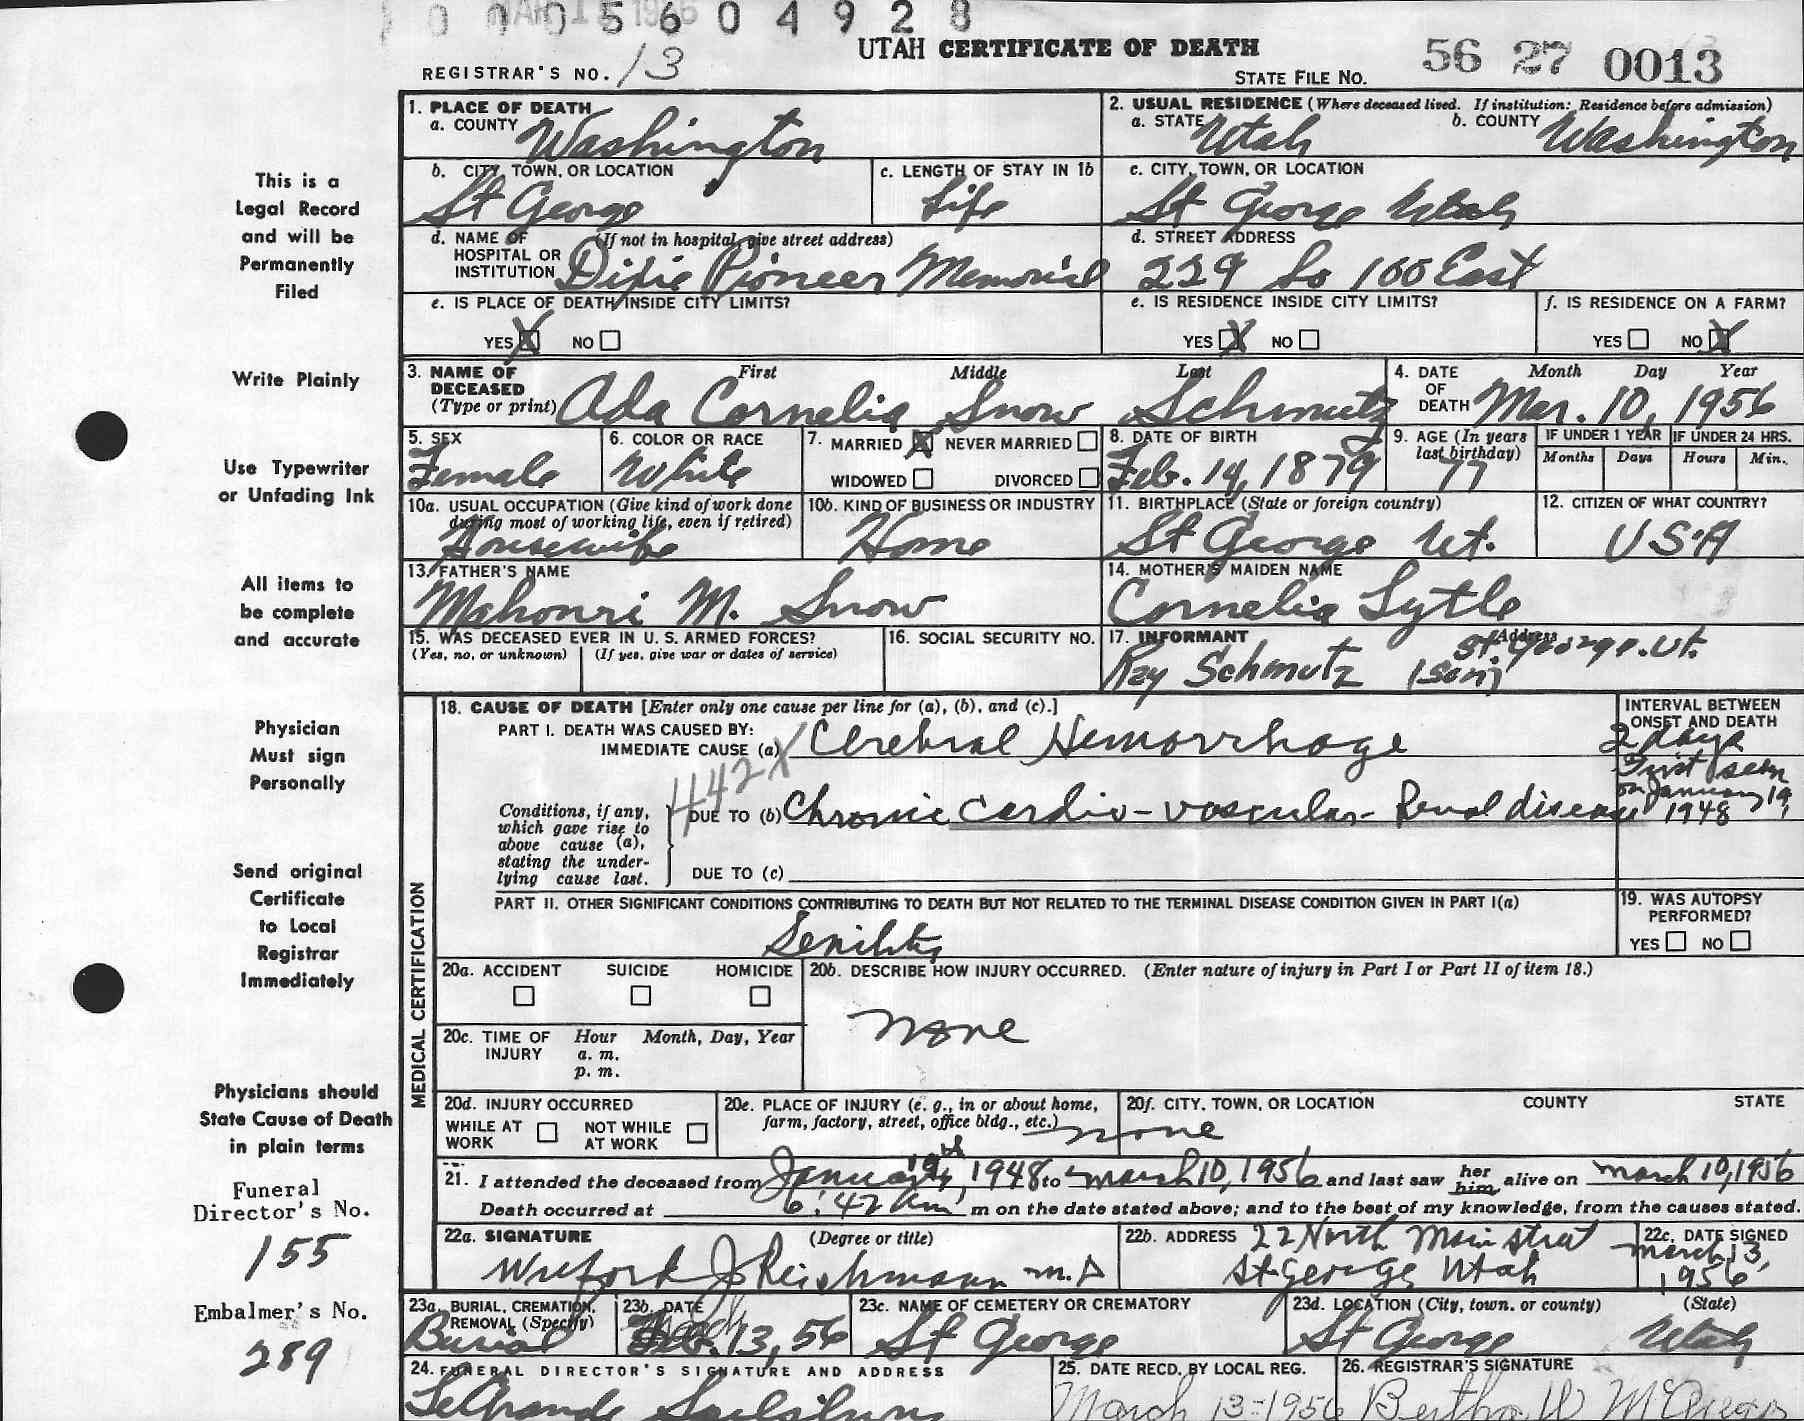 0 0 0 5 6 0 4 9 2 8
UTAH CERTIFICATE OF DEATH
REGISTRAR'S NO. 13
STATE FILE NO. 56 27 0013
This is a
Legal Record
and will be
Permanently
Filed
Write Plainly
Use Typewriter
or Unfading Ink
All items to
be complete
and accurate
Physician
Must sign
Personally
Send original
Certificate
to Local
Registrar
Immediately
Physicians should
State Cause of Death
in plain terms
Funeral
Director's No.
155
Embalmer's No.
289
1. PLACE OF DEATH
a. COUNTY Washington
2. USUAL RESIDENCE (Where deceased lived. If institution: Residence before admission)
a. STATE Utah b. COUNTY Washington
b. CITY, TOWN, OR LOCATION
St George
c. LENGTH OF STAY IN 1b
Life
c. CITY, TOWN, OR LOCATION
St George Utah
d. NAME OF (If not in hospital, give street address)
HOSPITAL OR
INSTITUTION Dixie Pioneer Memorial
d. STREET ADDRESS
229 So 100 East
e. IS PLACE OF DEATH INSIDE CITY LIMITS?
YES X NO
e. IS RESIDENCE INSIDE CITY LIMITS?
YES X NO
f. IS RESIDENCE ON A FARM?
YES NO X
3. NAME OF DECEASED (Type or print) First Middle Last
Ada Cornelia Snow Schmutz
4. DATE OF DEATH Month Day Year
Mar. 10, 1956
5. SEX
Female
6. COLOR OR RACE
White
7. MARRIED X NEVER MARRIED
WIDOWED DIVORCED
8. DATE OF BIRTH
Feb. 14, 1879
9. AGE (In years last birthday)
77
IF UNDER 1 YEAR IF UNDER 24 HRS.
Months Days Hours Min.
10a. USUAL OCCUPATION (Give kind of work done
during most of working life, even if retired)
Housewife
10b. KIND OF BUSINESS OR INDUSTRY
Home
11. BIRTHPLACE (State or foreign country)
St George Ut.
12. CITIZEN OF WHAT COUNTRY?
USA
13. FATHER'S NAME
Mahonri M. Snow
14. MOTHER'S MAIDEN NAME
Cornelia Lytle
15. WAS DECEASED EVER IN U. S. ARMED FORCES?
(Yes, no, or unknown) (If yes, give war or dates of service)
16. SOCIAL SECURITY NO.
17. INFORMANT Address
Ray Schmutz (son) St George. Ut.
MEDICAL CERTIFICATION
18. CAUSE OF DEATH [Enter only one cause per line for (a), (b), and (c).]
INTERVAL BETWEEN
ONSET AND DEATH
PART I. DEATH WAS CAUSED BY:
IMMEDIATE CAUSE (a) Cerebral Hemorrhage
2 days
442X
Conditions, if any,
which gave rise to
above cause (a),
stating the under-
lying cause last.
DUE TO (b) Chronic Cardio-vascular-Renal disease
First seen
on January 19,
1948
DUE TO (c)
PART II. OTHER SIGNIFICANT CONDITIONS CONTRIBUTING TO DEATH BUT NOT RELATED TO THE TERMINAL DISEASE CONDITION GIVEN IN PART I(a)
Senility
19. WAS AUTOPSY
PERFORMED?
YES NO
20a. ACCIDENT SUICIDE HOMICIDE
20b. DESCRIBE HOW INJURY OCCURRED. (Enter nature of injury in Part I or Part II of item 18.)
none
20c. TIME OF INJURY Hour Month, Day, Year
a. m.
p. m.
20d. INJURY OCCURRED
WHILE AT WORK NOT WHILE AT WORK
20e. PLACE OF INJURY (e. g., in or about home,
farm, factory, street, office bldg., etc.)
none
20f. CITY, TOWN, OR LOCATION COUNTY STATE
21. I attended the deceased from January 19th, 1948 to March 10, 1956 and last saw her him alive on March 10, 1956
Death occurred at 6:42 am m on the date stated above; and to the best of my knowledge, from the causes stated.
22a. SIGNATURE (Degree or title)
Wilford J Reichmann M.D
22b. ADDRESS 22 North Main Street
St George Utah
22c. DATE SIGNED
March 13,
1956
23a. BURIAL, CREMATION,
REMOVAL (Specify)
Burial
23b. DATE
March 13, 56
23c. NAME OF CEMETERY OR CREMATORY
St George
23d. LOCATION (City, town, or county) (State)
St George Utah
24. FUNERAL DIRECTOR'S SIGNATURE AND ADDRESS
25. DATE RECD. BY LOCAL REG.
March 13-1956
26. REGISTRAR'S SIGNATURE
Bertha W